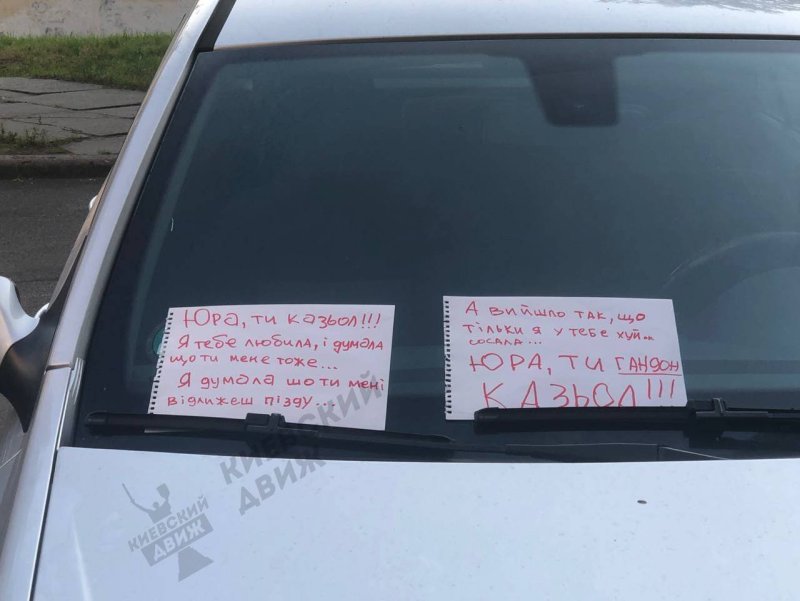 Юра, ти казьол!!!
Я тебе любила, і думала
що ти мене тоже...
Я думала шо ти мені
відлижеш пізду...
А вийшло так, що
тільки я у тебе хуй...
сосала...
Юра, ти гандон
казьол!!!
КИЕВСКИЙ
ДВИЖ
КИЕВСКИЙ
ДВИЖ